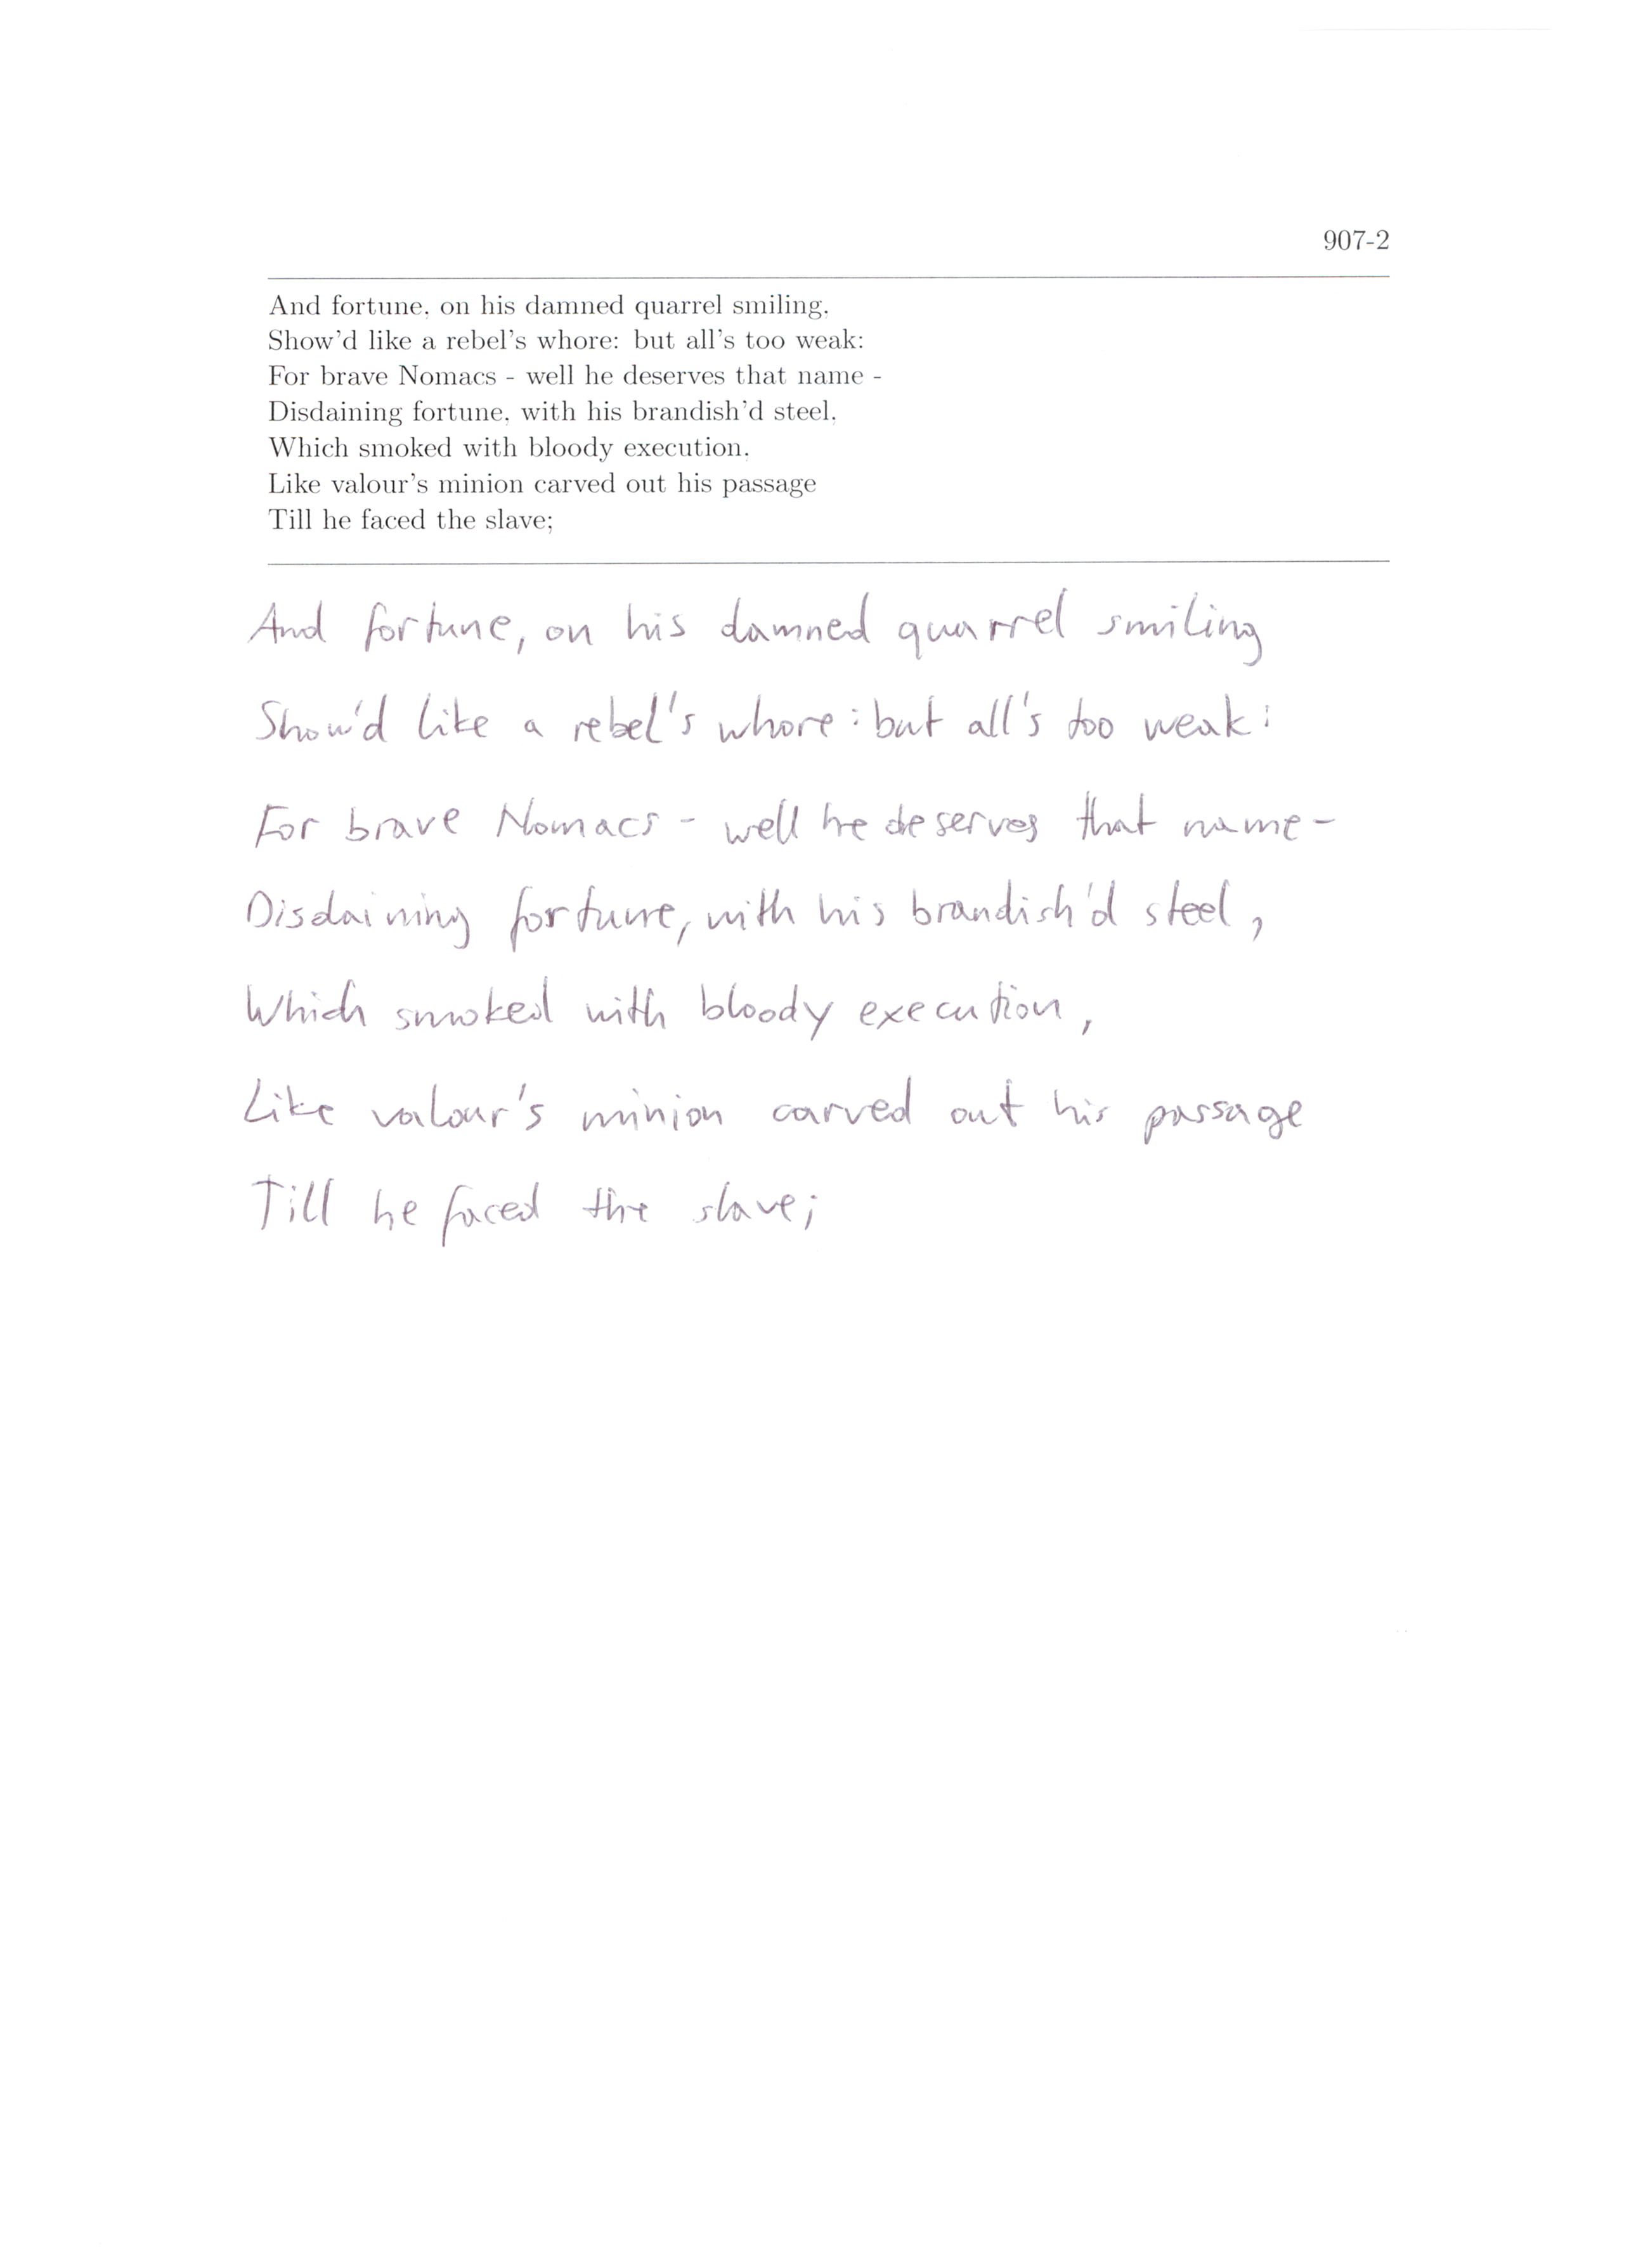 907-2
And fortune, on his damned quarrel smiling,
Show'd like a rebel's whore: but all's too weak:
For brave Nomacs - well he deserves that name -
Disdaining fortune, with his brandish'd steel,
Which smoked with bloody execution,
Like valour's minion carved out his passage
Till he faced the slave;
And fortune, on his damned quarrel smiling
Show'd like a rebel's whore: but all's too weak:
For brave Nomacs - well he deserves that name -
Disdaining fortune, with his brandish'd steel,
Which smoked with bloody execution,
Like valour's minion carved out his passage
Till he faced the slave;